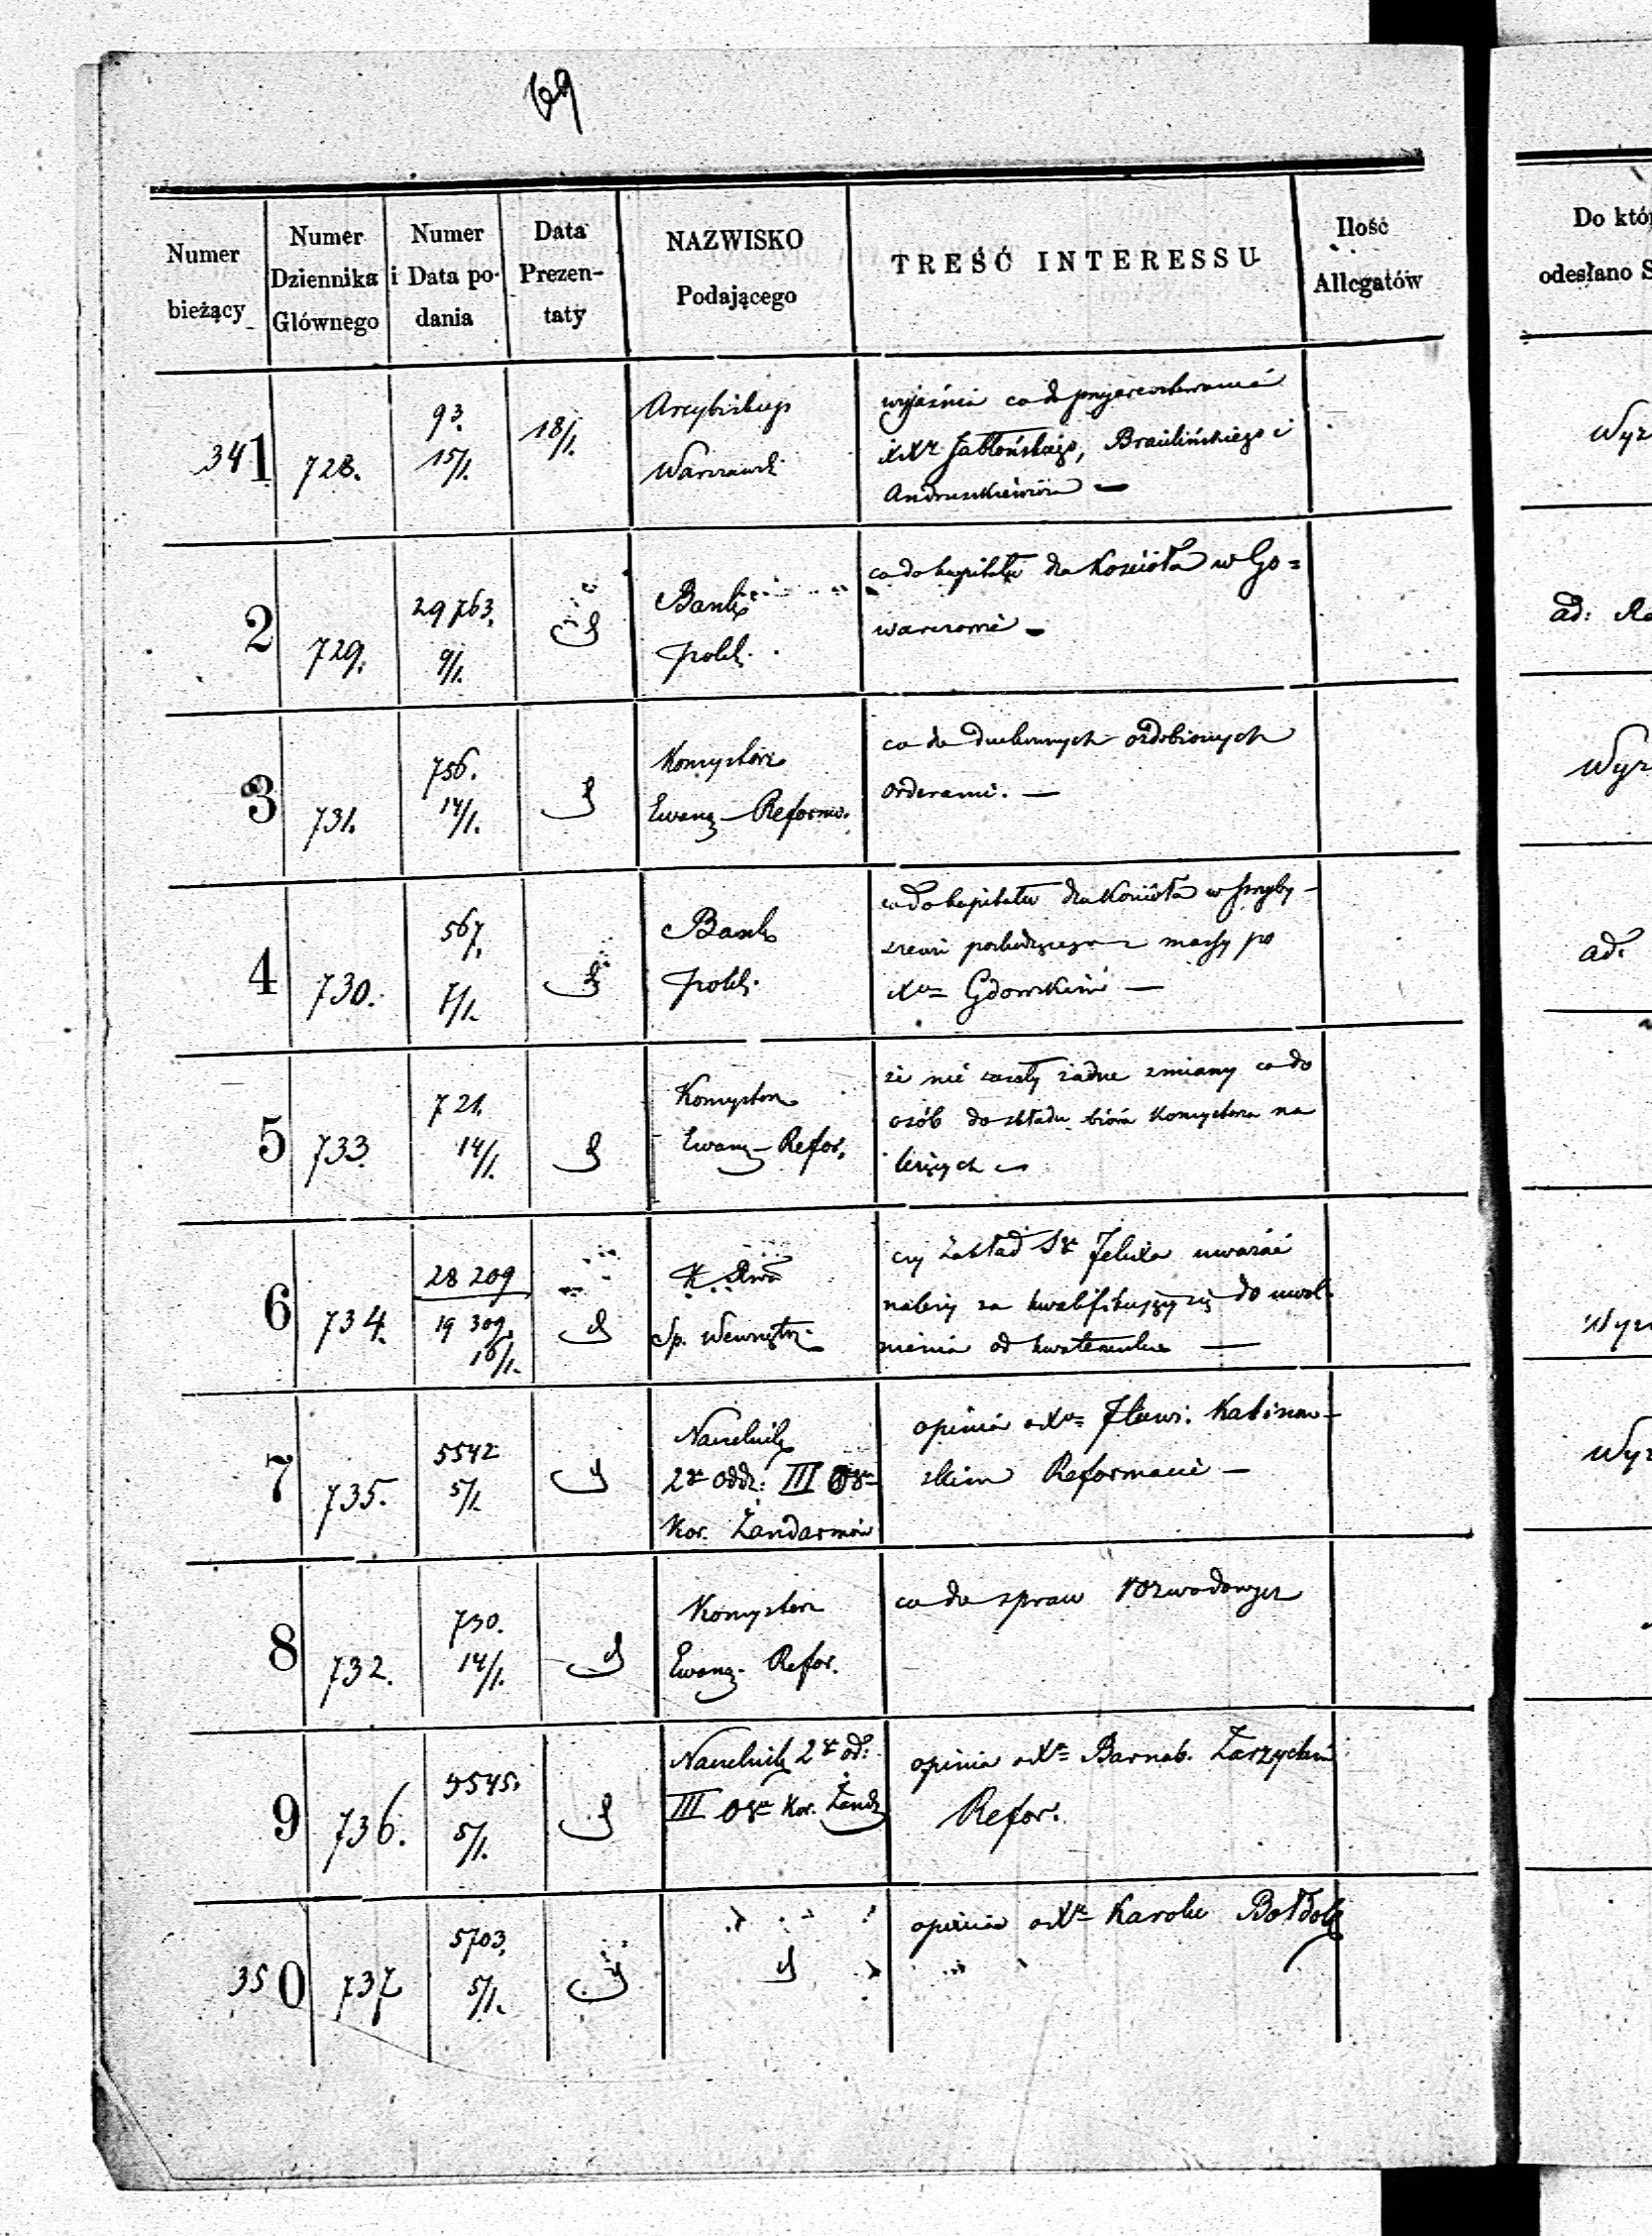 69
Numer bieżący
Numer Dziennika Głównego
Numer i Data podania
Data Prezentaty
NAZWISKO Podającego
TREŚĆ INTERESSU
Ilość Allegatów
Do któ
odesłano S
341
728.
93.
15/1.
18/1.
Arcybiskup
Warszawsk
wyjaśnia co do
XXr Jabłońskiego, Braulińskiego i
Andruszkiewicza —
Wyz
2
729.
29763.
9/1.
Bank
polsk.
co do kapitału dla Kościoła w Go=
warczowie —
ad:
3
731.
756.
14/1.
Konsystorz
Ewang–Reformo.
co do duchownych ozdobionych
orderami. —
Wyz
4
730.
567.
7/1.
Bank
polsk.
co do kapitału dla Kościoła w Przyby-
szewi pochodzącego z massy po
Xu= Gdowskim —
ad.
5
733.
721.
14/1.
Konsystorz
Ewang–Refor.
że nie zaszły żadne zmiany co do
osób do składu bióra Konsystorza na
leżących —
6
734.
28 209
19 309.
16/1.
K. Rwa
Sp. Wewnętrz.
czy Zakład Sgo Felixa uważać
należy za kwalifikujący się do uwol-
nienia od kwaterunku —
Wyz
7
735.
5542
5/1.
Naczelnik
2go Oddz: III Ogu
Kor. Żandarmów
opinia o Xu= Flawi. Kalinow-
skim Reformacie —
Wyz
8
732.
730.
14/1.
Konsystorz
Ewang. Refor.
co do spraw rozwodowych
9
736.
5545.
5/1.
Naczelnik 2go od:
III Ogu Kor. Żand
opinia o Xu= Barnab. Zarzyckim
Refor.
350
737.
5703.
5/1.
opinia o Xu= Karolu